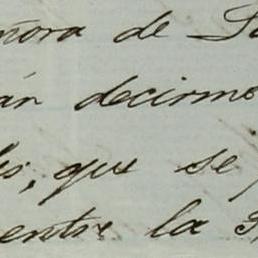 ñora de
án decirmo
que se
entre la